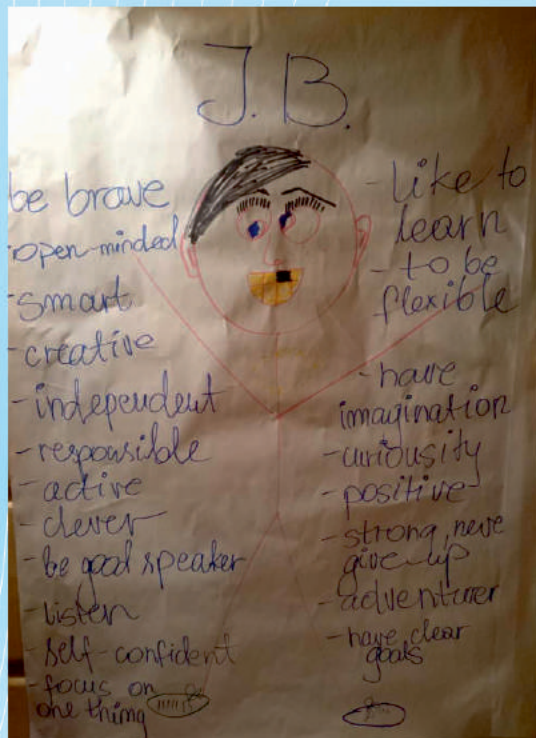 J. B.
be brave
open-minded
-smart
-creative
-independent
-responsible
-active
-clever
-be good speaker
-listen
-self-confident
-focus on
one thing
-like to
learn
-to be
flexible
-have
imagination
-curiousity
-positive
-strong, neve
give-up
-adventurer
-have clear
goals